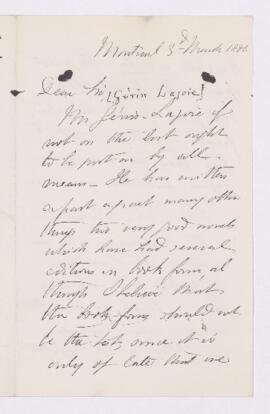 Montreal 3d March 1882
Dear Sir [Gérin Lajoie]
Mr Gérin-Lajoie if
not on the list ought
to be put on by all
means – He has written
apart a great many other
things two very good novels
which have had several
editions in book form, al
though I believe that
the book-form should not
be the test, since it is
only of late that we